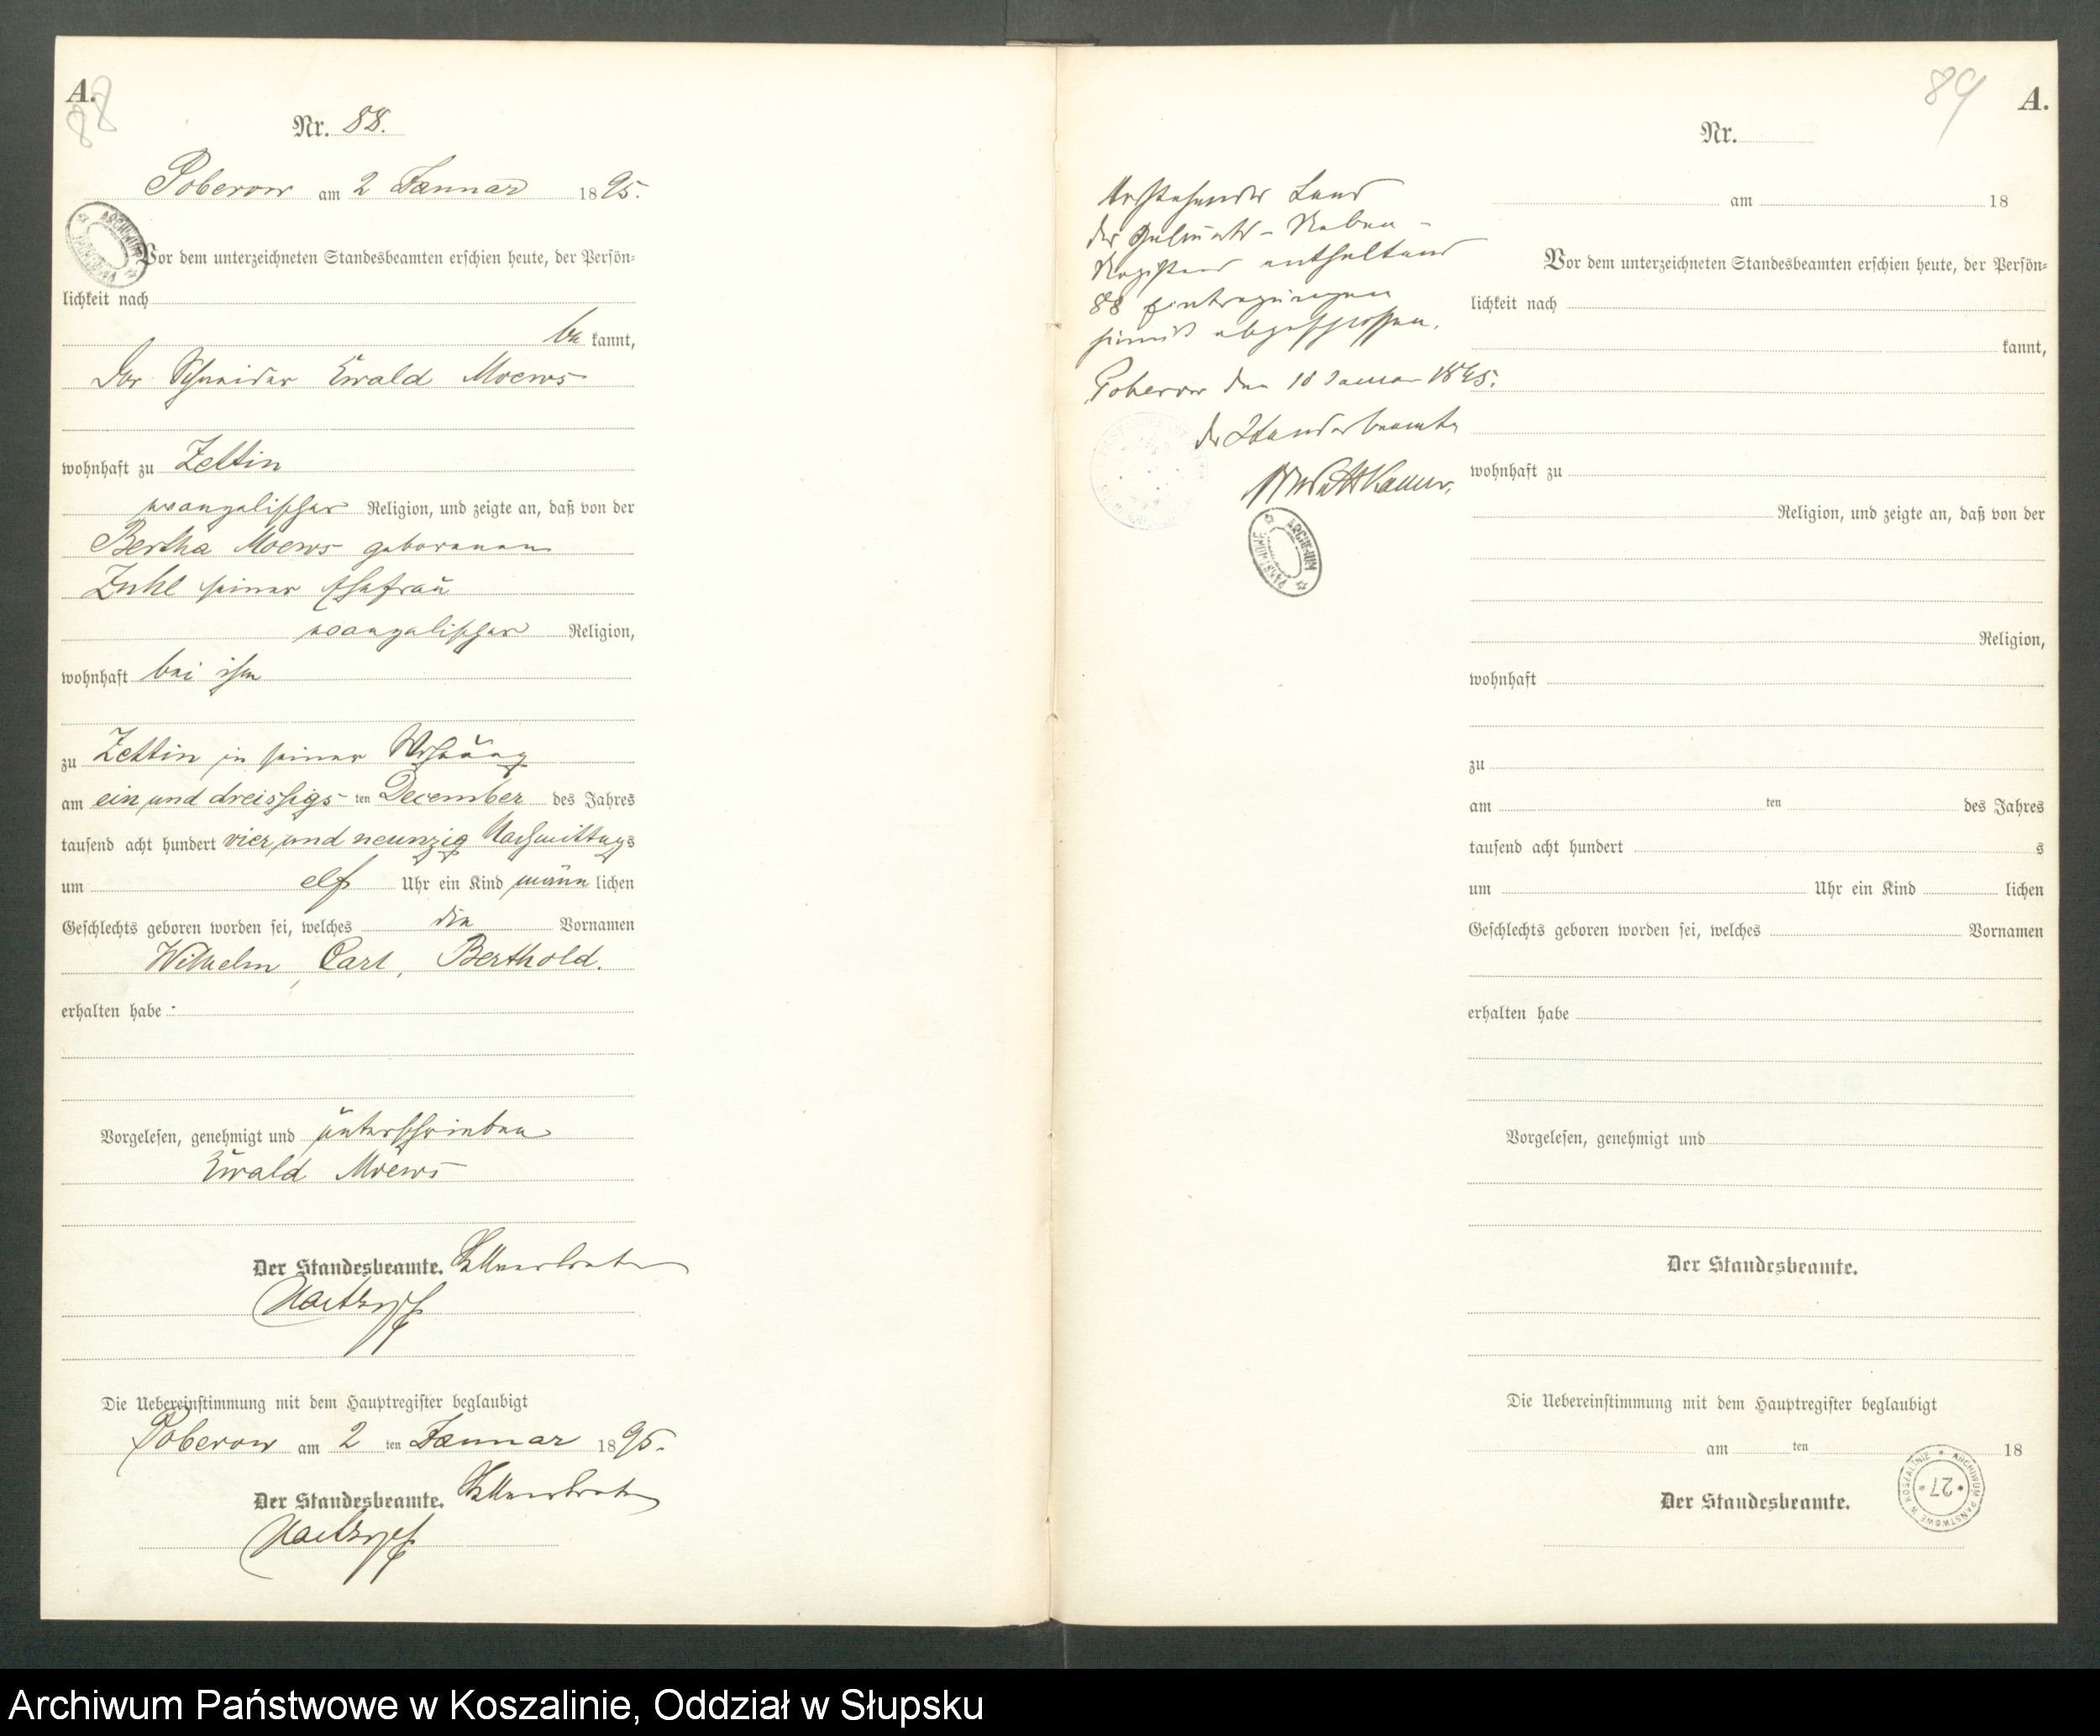 A.
88
Nr. 88.
Poberow am 2 Januar 1895.
ARCHIWUM PAŃSTWOWE
Vor dem unterzeichneten Standesbeamten erschien heute, der Persön=
lichkeit nach
be kannt,
Der Schneider Ewald Moews
wohnhaft zu Zettin
evangelischer Religion, und zeigte an, daß von der
Bertha Moews geborenen
seiner Ehefrau
evangelischer Religion,
wohnhaft bei ihm
zu Zettin in seiner Wohnung
am ein und dreissigs ten December des Jahres
tausend acht hundert vier und neunzig Nachmittags
um elf Uhr ein Kind männ lichen
Geschlechts geboren worden sei, welches die Vornamen
Wilhelm, Carl, Berthold.
erhalten habe
Vorgelesen, genehmigt und unterschrieben
Ewald Moews
Der Standesbeamte.
Die Uebereinstimmung mit dem Hauptregister beglaubigt
Poberow am 2 ten Januar 1895.
Der Standesbeamte.
89
A.
Nr.
am 18
Vorstehender Band
des Geburts-Neben-
Registers enthaltend
88 Eintragungen
hiermit abgeschlossen.
Poberow den 10 Januar 1895.
der Standesbeamte
ARCHIWUM PAŃSTWOWE
Vor dem unterzeichneten Standesbeamten erschien heute, der Persön=
lichkeit nach
kannt,
wohnhaft zu
Religion, und zeigte an, daß von der
Religion,
wohnhaft
zu
am ten des Jahres
tausend acht hundert s
um Uhr ein Kind lichen
Geschlechts geboren worden sei, welches Vornamen
erhalten habe
Vorgelesen, genehmigt und
Der Standesbeamte.
Die Uebereinstimmung mit dem Hauptregister beglaubigt
am ten 18
Der Standesbeamte.
ARCHIWUM PAŃSTWOWE W KOSZALINIE
*27*
Archiwum Państwowe w Koszalinie, Oddział w Słupsku